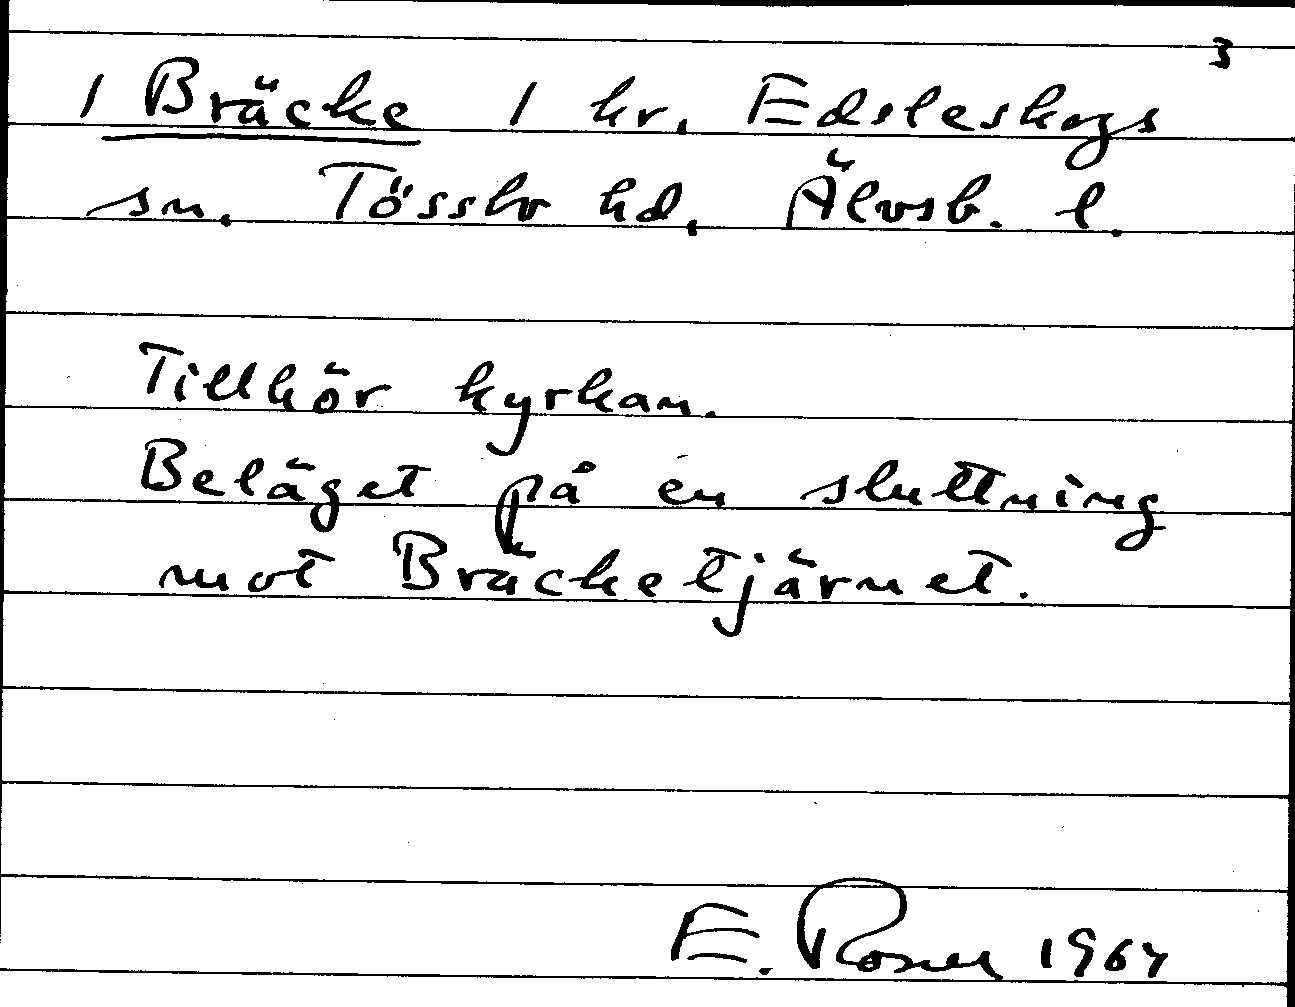 3
1 Bräcke 1 kr. Edsleskogs
sn. Tössbo hd. Älvsb. l.
Tillhör kyrkan.
Beläget på en sluttning
mot Bräcketjärnet.
E. 1964